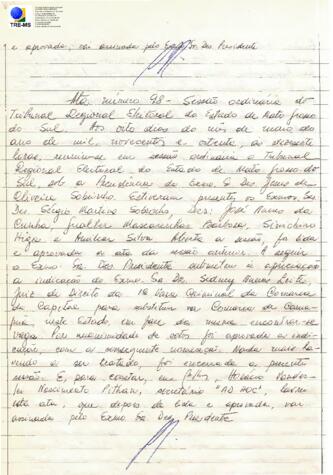 TRE-MS
e aprovada, vai assinada pelo Exmo. Sr. Des. Presidente
Ata número 98 - Sessão ordinária do
Tribunal Regional Eleitoral do Estado de Mato Grosso
do Sul. Aos oito dias do mês de maio do
ano de mil, novecentos e oitenta, às dezessete
horas, reuniu-se em sessão ordinária o Tribunal
Regional Eleitoral do Estado de Mato Grosso do
Sul, sob a Presidência do Exmo. Sr. Des. Jesus de
Oliveira Sobrinho. Estiveram presentes os Exmos. Srs.
Drs. Sérgio Martins Sobrinho, José Nunes da
Cunha, Mascarenhas Barbosa,
e Silva. Aberta a sessão, foi lida
e aprovada a ata da sessão anterior. A seguir
o Exmo. Sr. Des. Presidente submeteu à apreciação
a indicação do Exmo. Sr. Dr. Sidney Nunes Leite,
Juiz de Direito da 1ª Vara Criminal da Comarca
da Capital, para substituir na Comarca de
neste Estado, em face da mesma encontrar-se
vaga. Por unanimidade de votos foi aprovada a indi-
cação, com a conseqüente nomeação. Nada mais ha-
vendo a ser tratado, foi encerrada a presente
sessão. E, para constar, eu, Horácio
Nascimento Pithan, secretário "AD HOC", lavrei
esta ata, que depois de lida e aprovada, vai
assinada pelo Exmo. Sr. Des. Presidente